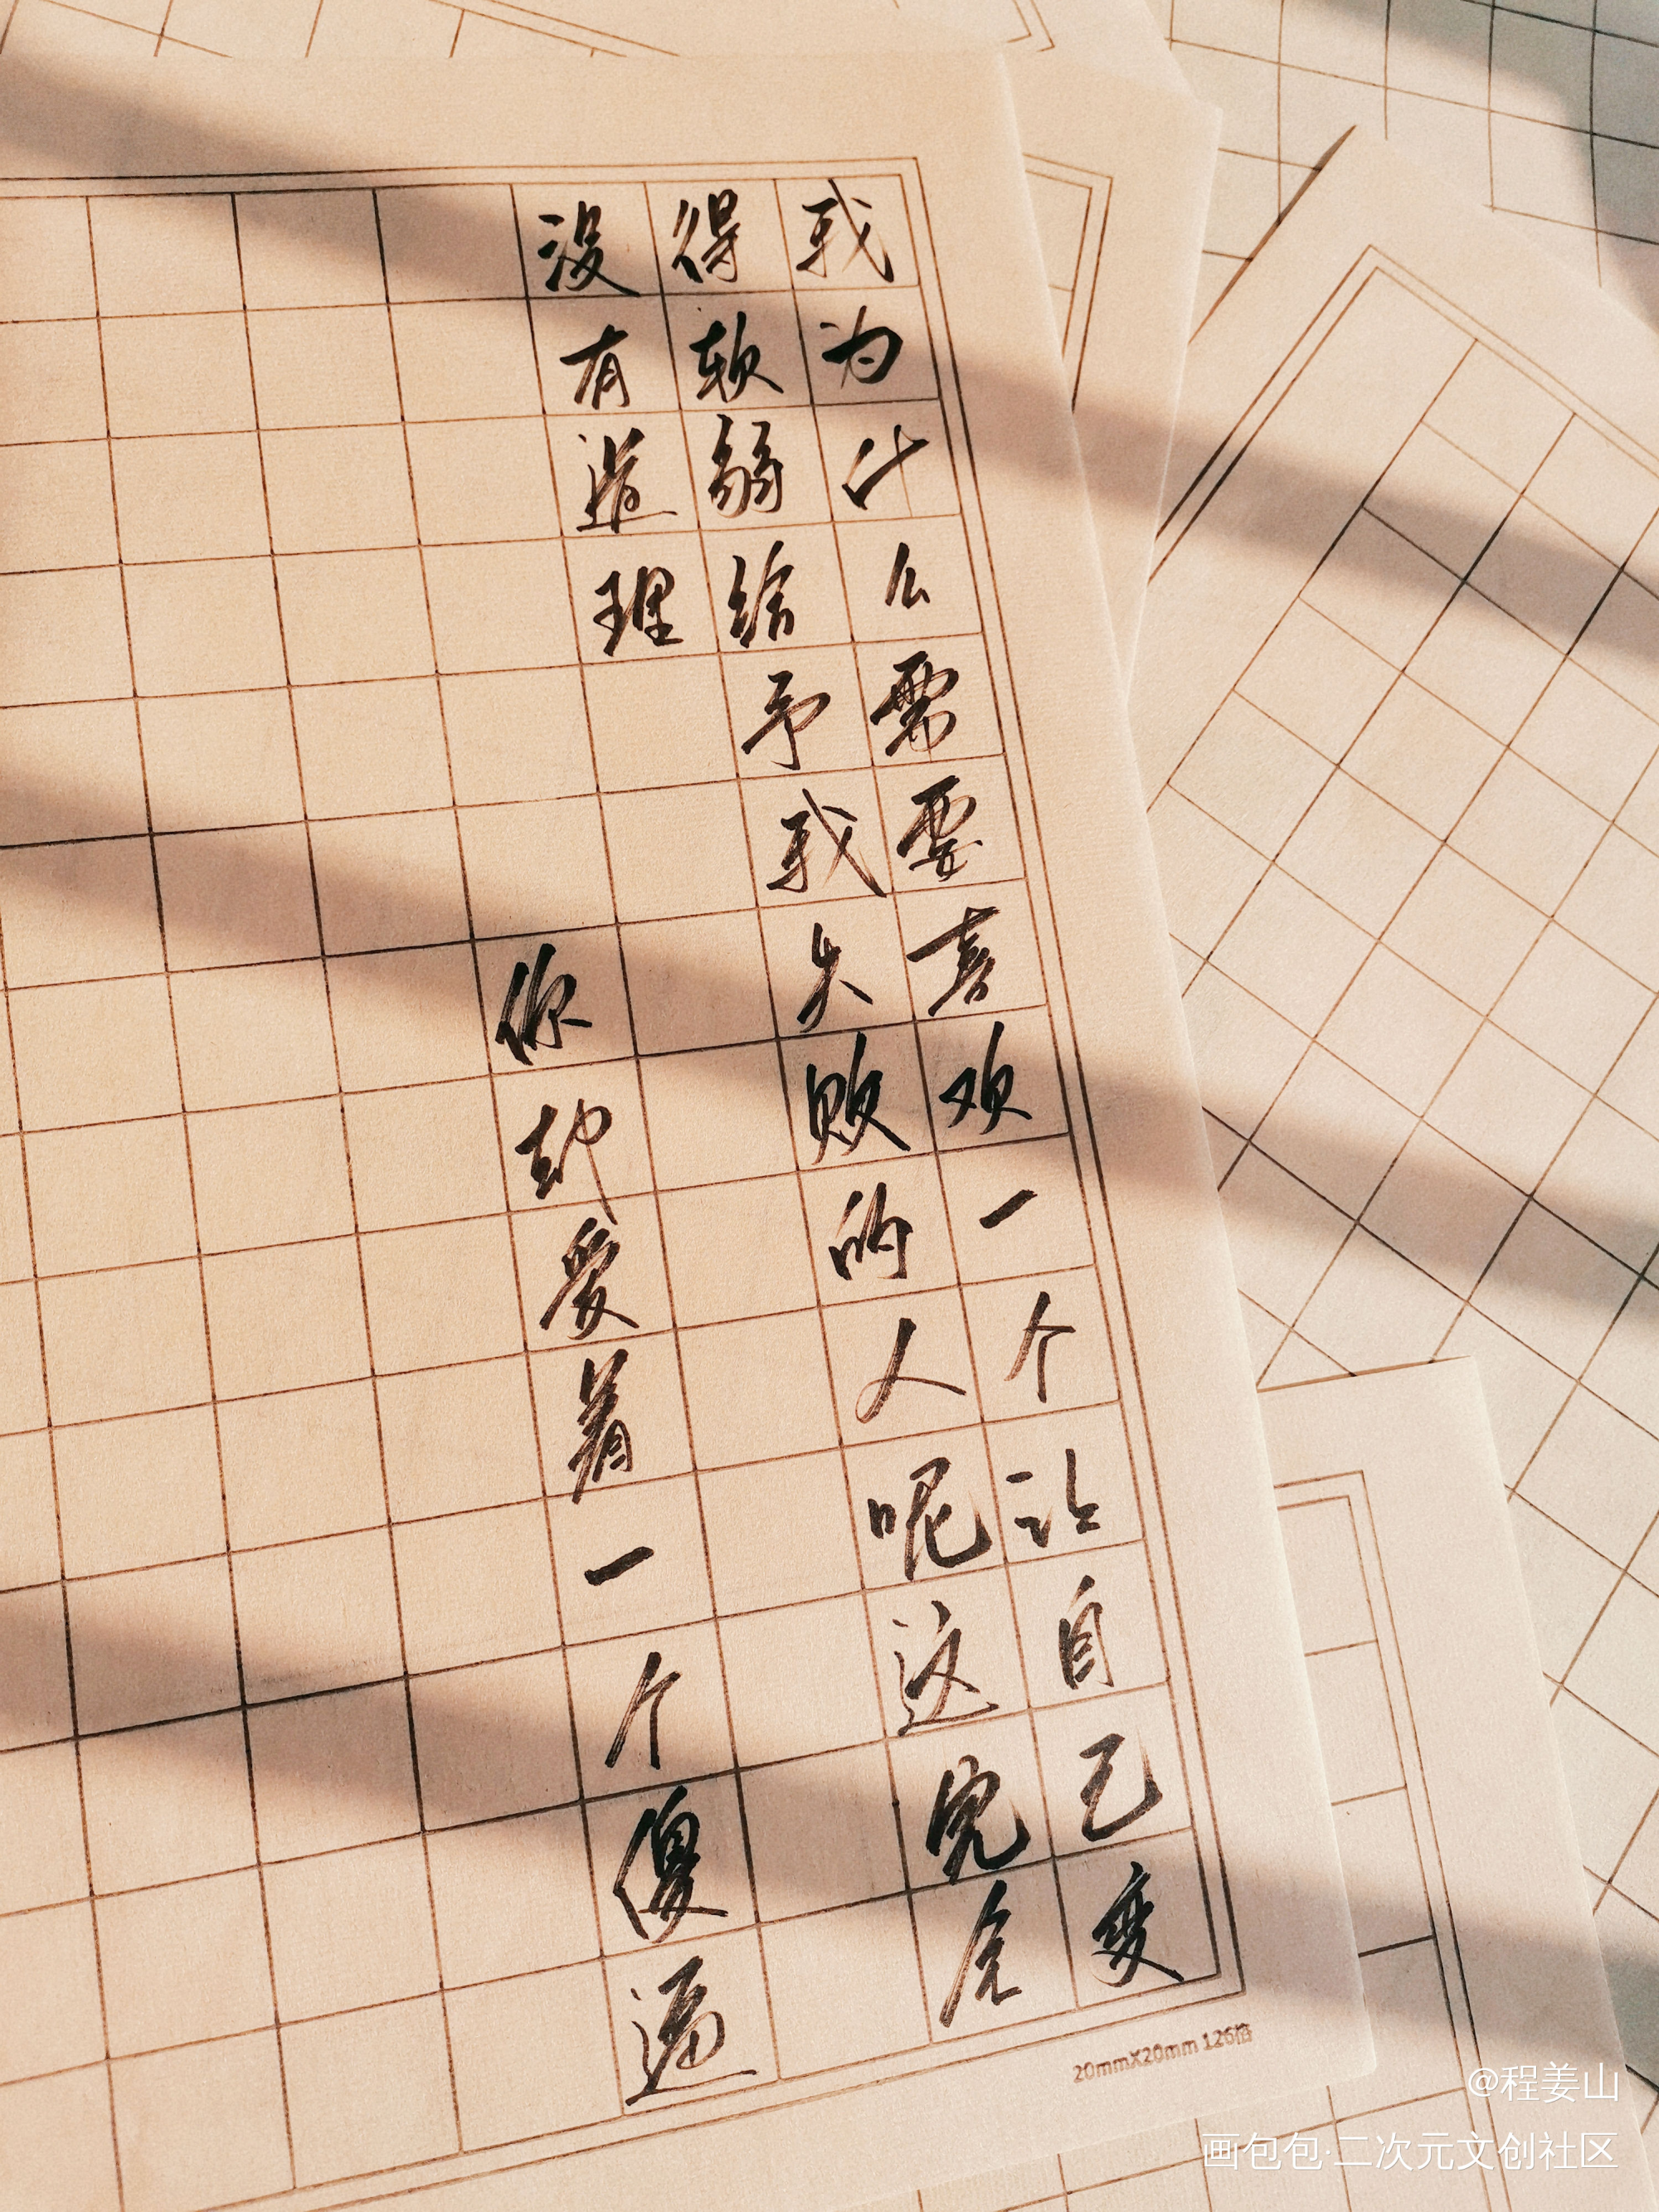 我为什么需要喜欢一个让自己变
得软弱给予我失败的人呢这完全
没有道理
你却爱着一个傻逼
20mmX20mm 126格
@程姜山
画包包·二次元文创社区